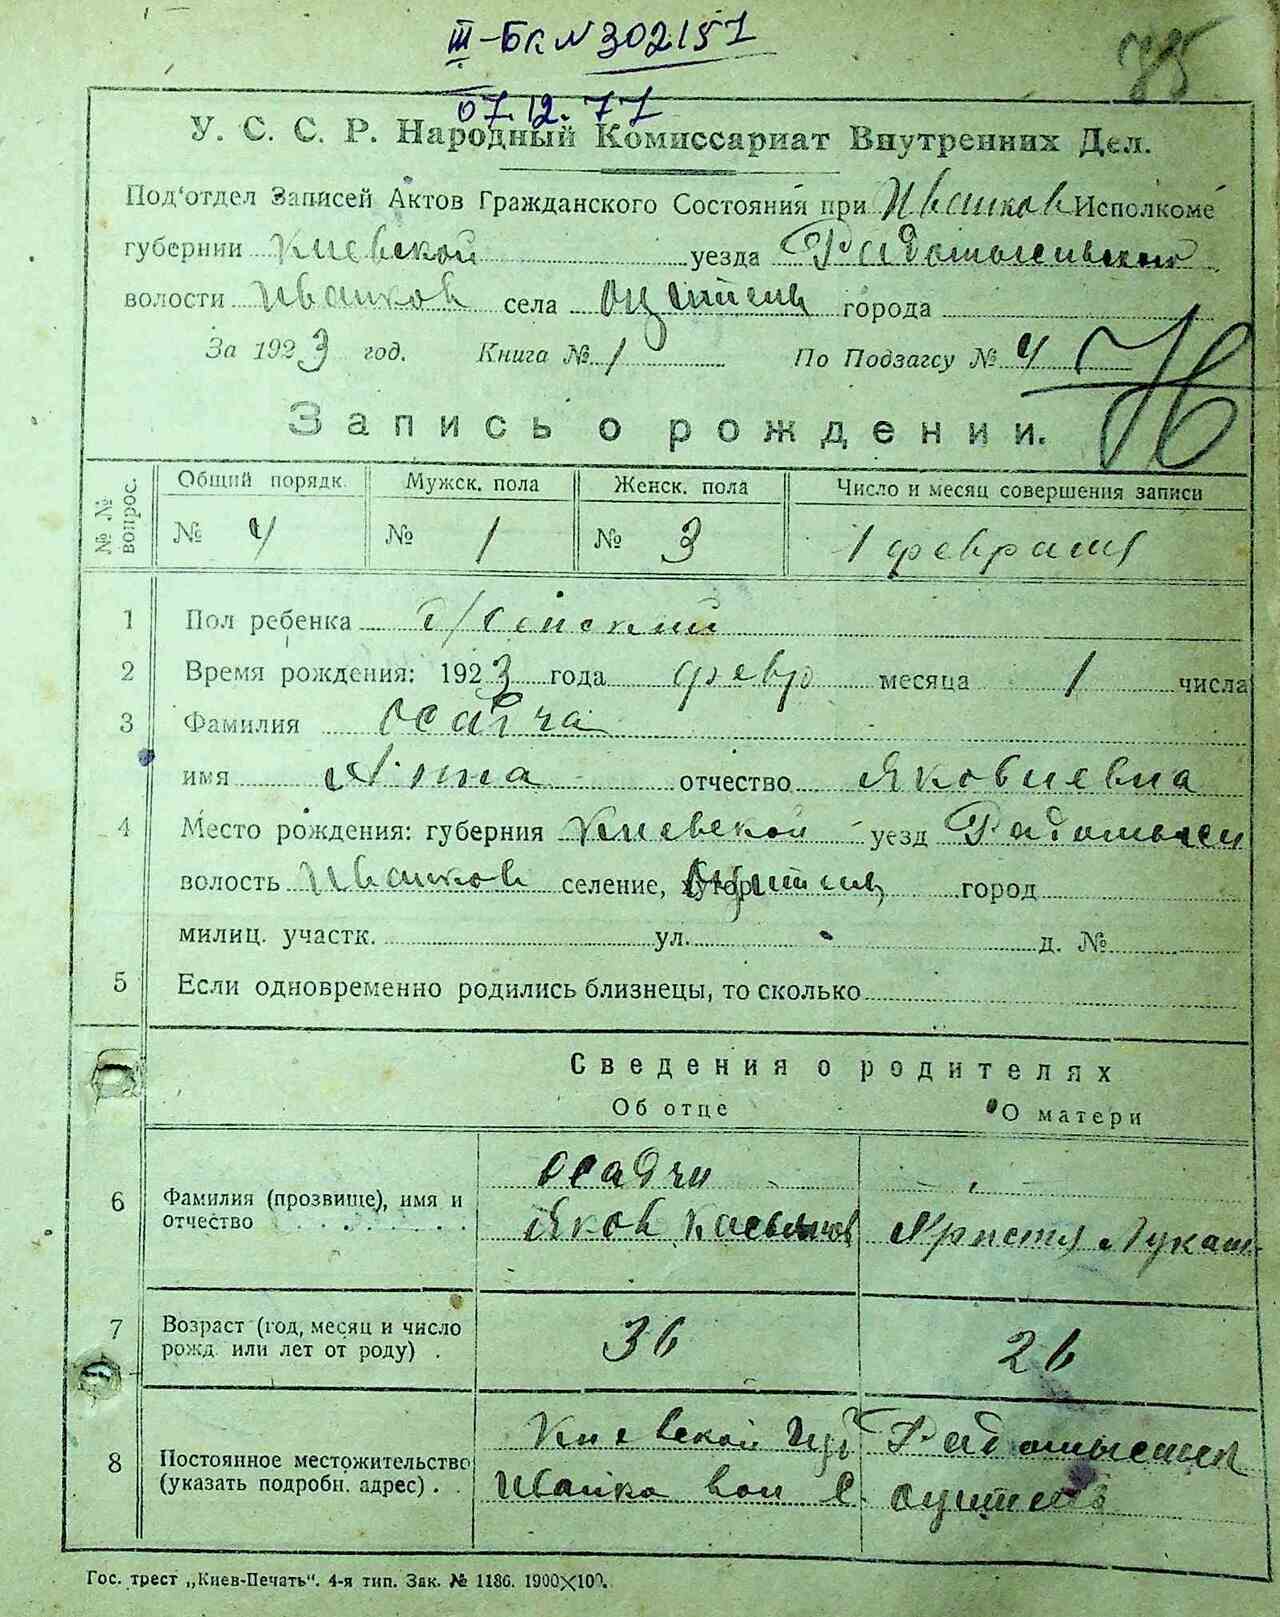 III-БК N 302151
75
07.12.77
У. С. С. Р. Народный Комиссариат Внутренних Дел.
Под'отдел Записей Актов Гражданского Состояния при Иванков Исполкоме
губернии Киевской уезда Радомысльской
волости Иванков села Оцитель города
За 1923 год. Книга № 1 По Подзагсу № 4
Запись о рождении.
№ № вопрос. Общий порядк. Мужск. пола Женск. пола Число и месяц совершения записи
№ 4 № 1 № 3 1 февраля
1 Пол ребенка женский
2 Время рождения: 1923 года февр месяца 1 числа
3 Фамилия Осадча
имя Анна отчество Яковлевна
4 Место рождения: губерния Киевской уезд Радомысл
волость Иванков селение, хутор Оцитель город
милиц. участк. ул. д. №
5 Если одновременно родились близнецы, то сколько
Сведения о родителях
Об отце О матери
6 Фамилия (прозвище), имя и отчество
Осадчи - " -
Яков Касьянов Христя Лукаш
7 Возраст (год, месяц и число рожд или лет от роду) .
36 26
8 Постоянное местожительство (указать подробн. адрес) . .
Киевской губ Радомысльск
Иванко вол С. Оцитель
Гос. трест „Киев-Печать“. 4-я тип. Зак. № 1186. 1900×100.